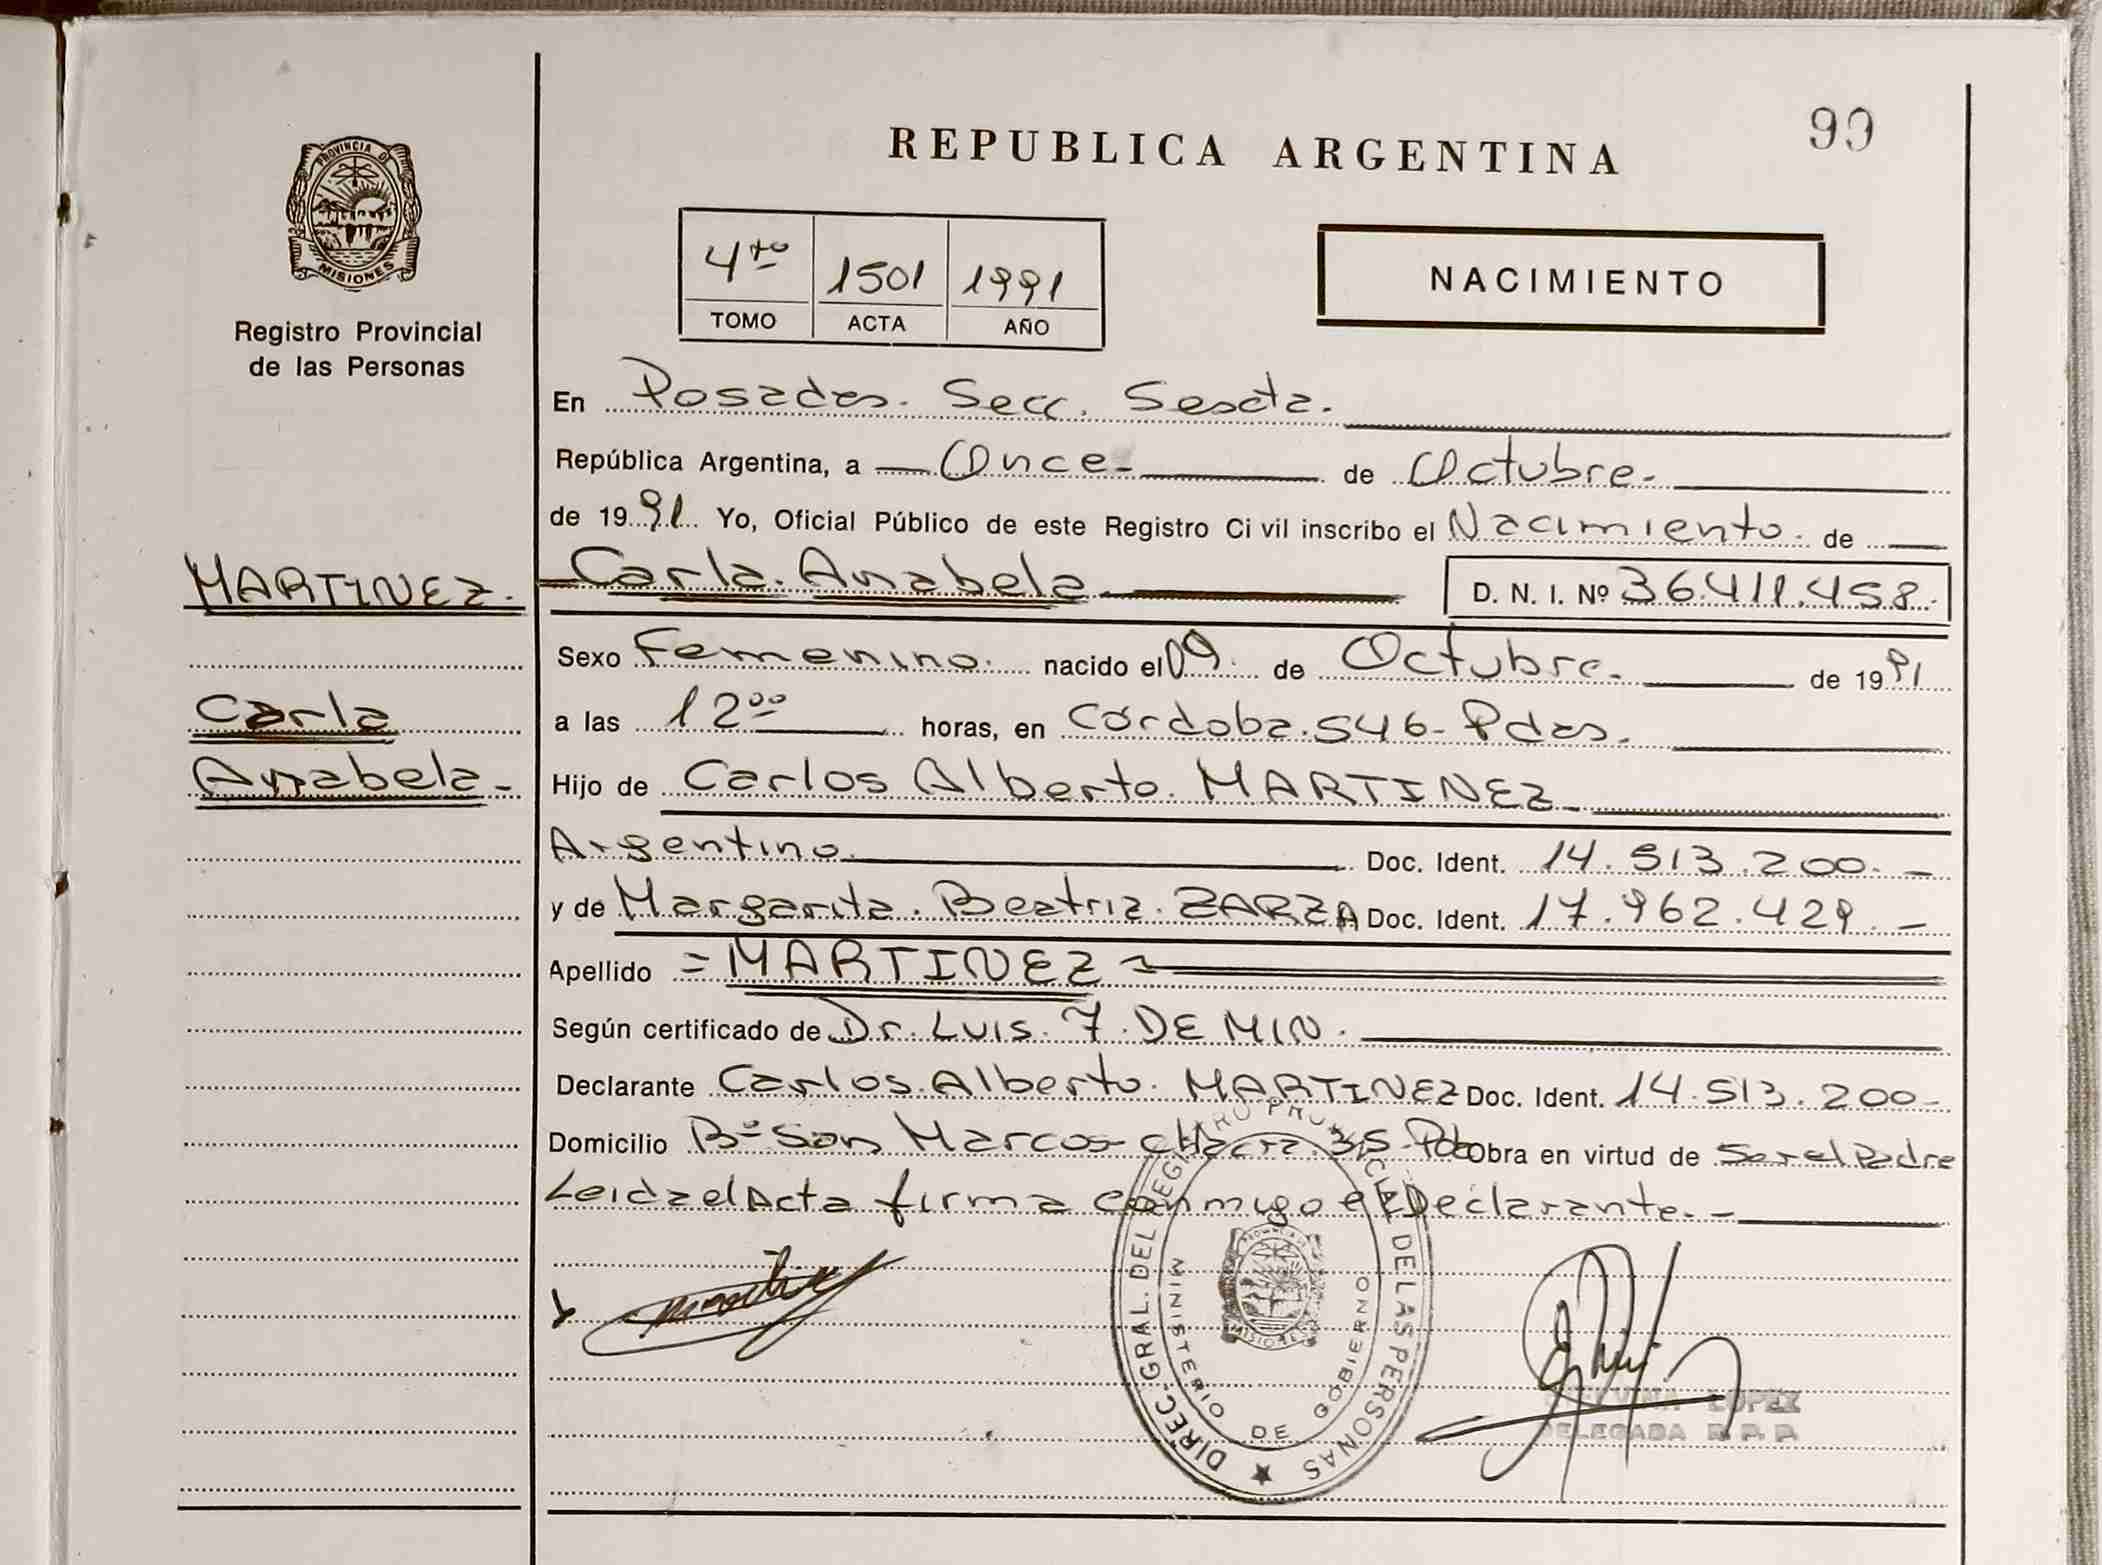 99
REPUBLICA ARGENTINA
PROVINCIA DE
MISIONES
Registro Provincial
de las Personas
4to 1501 1991
TOMO ACTA AÑO
NACIMIENTO
En Posadas. Secc. Sexta.
República Argentina, a Once de Octubre
de 1991 Yo, Oficial Público de este Registro Civil inscribo el Nacimiento de
MARTINEZ.
Carla Anabela D. N. I. Nº 36.411.458.
Sexo Femenino. nacido el 09 de Octubre. de 1991
Carla
a las 12 00 horas, en Córdoba 546 - Pdas.
Anabela -
Hijo de Carlos Alberto MARTINEZ
Argentino. Doc. Ident. 14.513.200. -
y de Margarita Beatriz ZARZA Doc. Ident. 17.962.429. -
Apellido = MARTINEZ
Según certificado de Dr. LUIS. DE MIN.
Declarante Carlos Alberto MARTINEZ Doc. Ident. 14.513.200 -
Domicilio Bº San Marcos - chacra 35 - Obra en virtud de Ser el Padre
Leida el Acta firma conmigo el Declarante. -
DIREC. GRAL. DEL REGISTRO PROVINCIAL DE LAS PERSONAS
MINISTERIO DE GOBIERNO
PROVINCIA DE
MISIONES
LOPEZ
DELEGADA R. P. P.